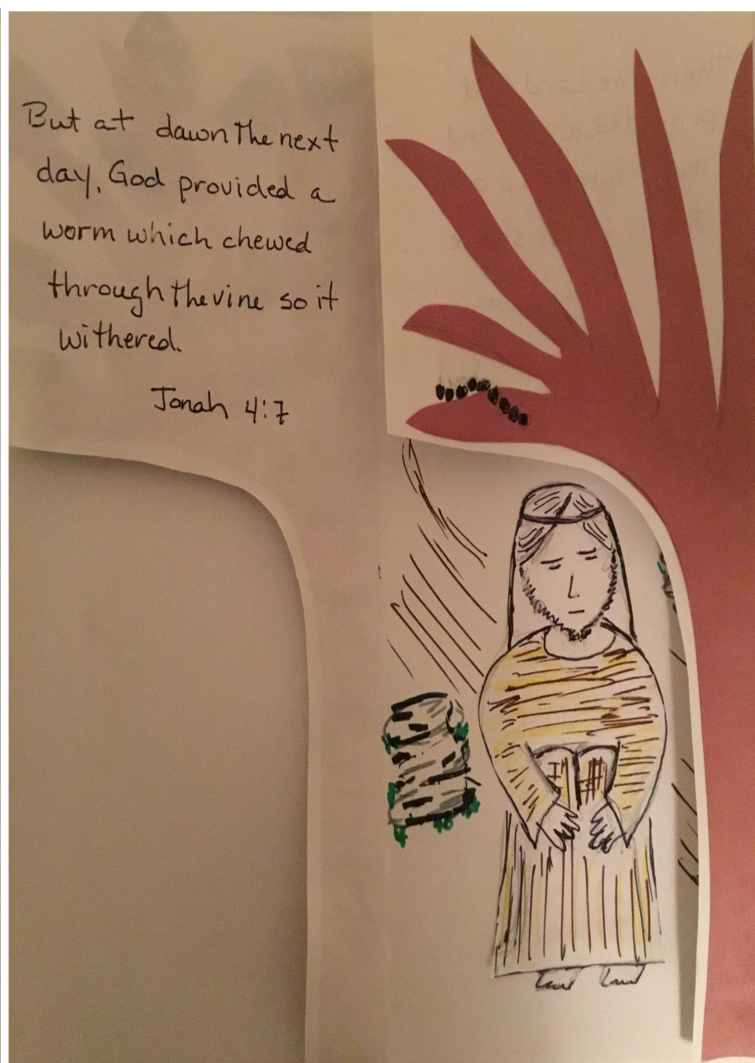 But at dawn the next
day, God provided a
worm which chewed
through the vine so it
withered.
Jonah 4:7